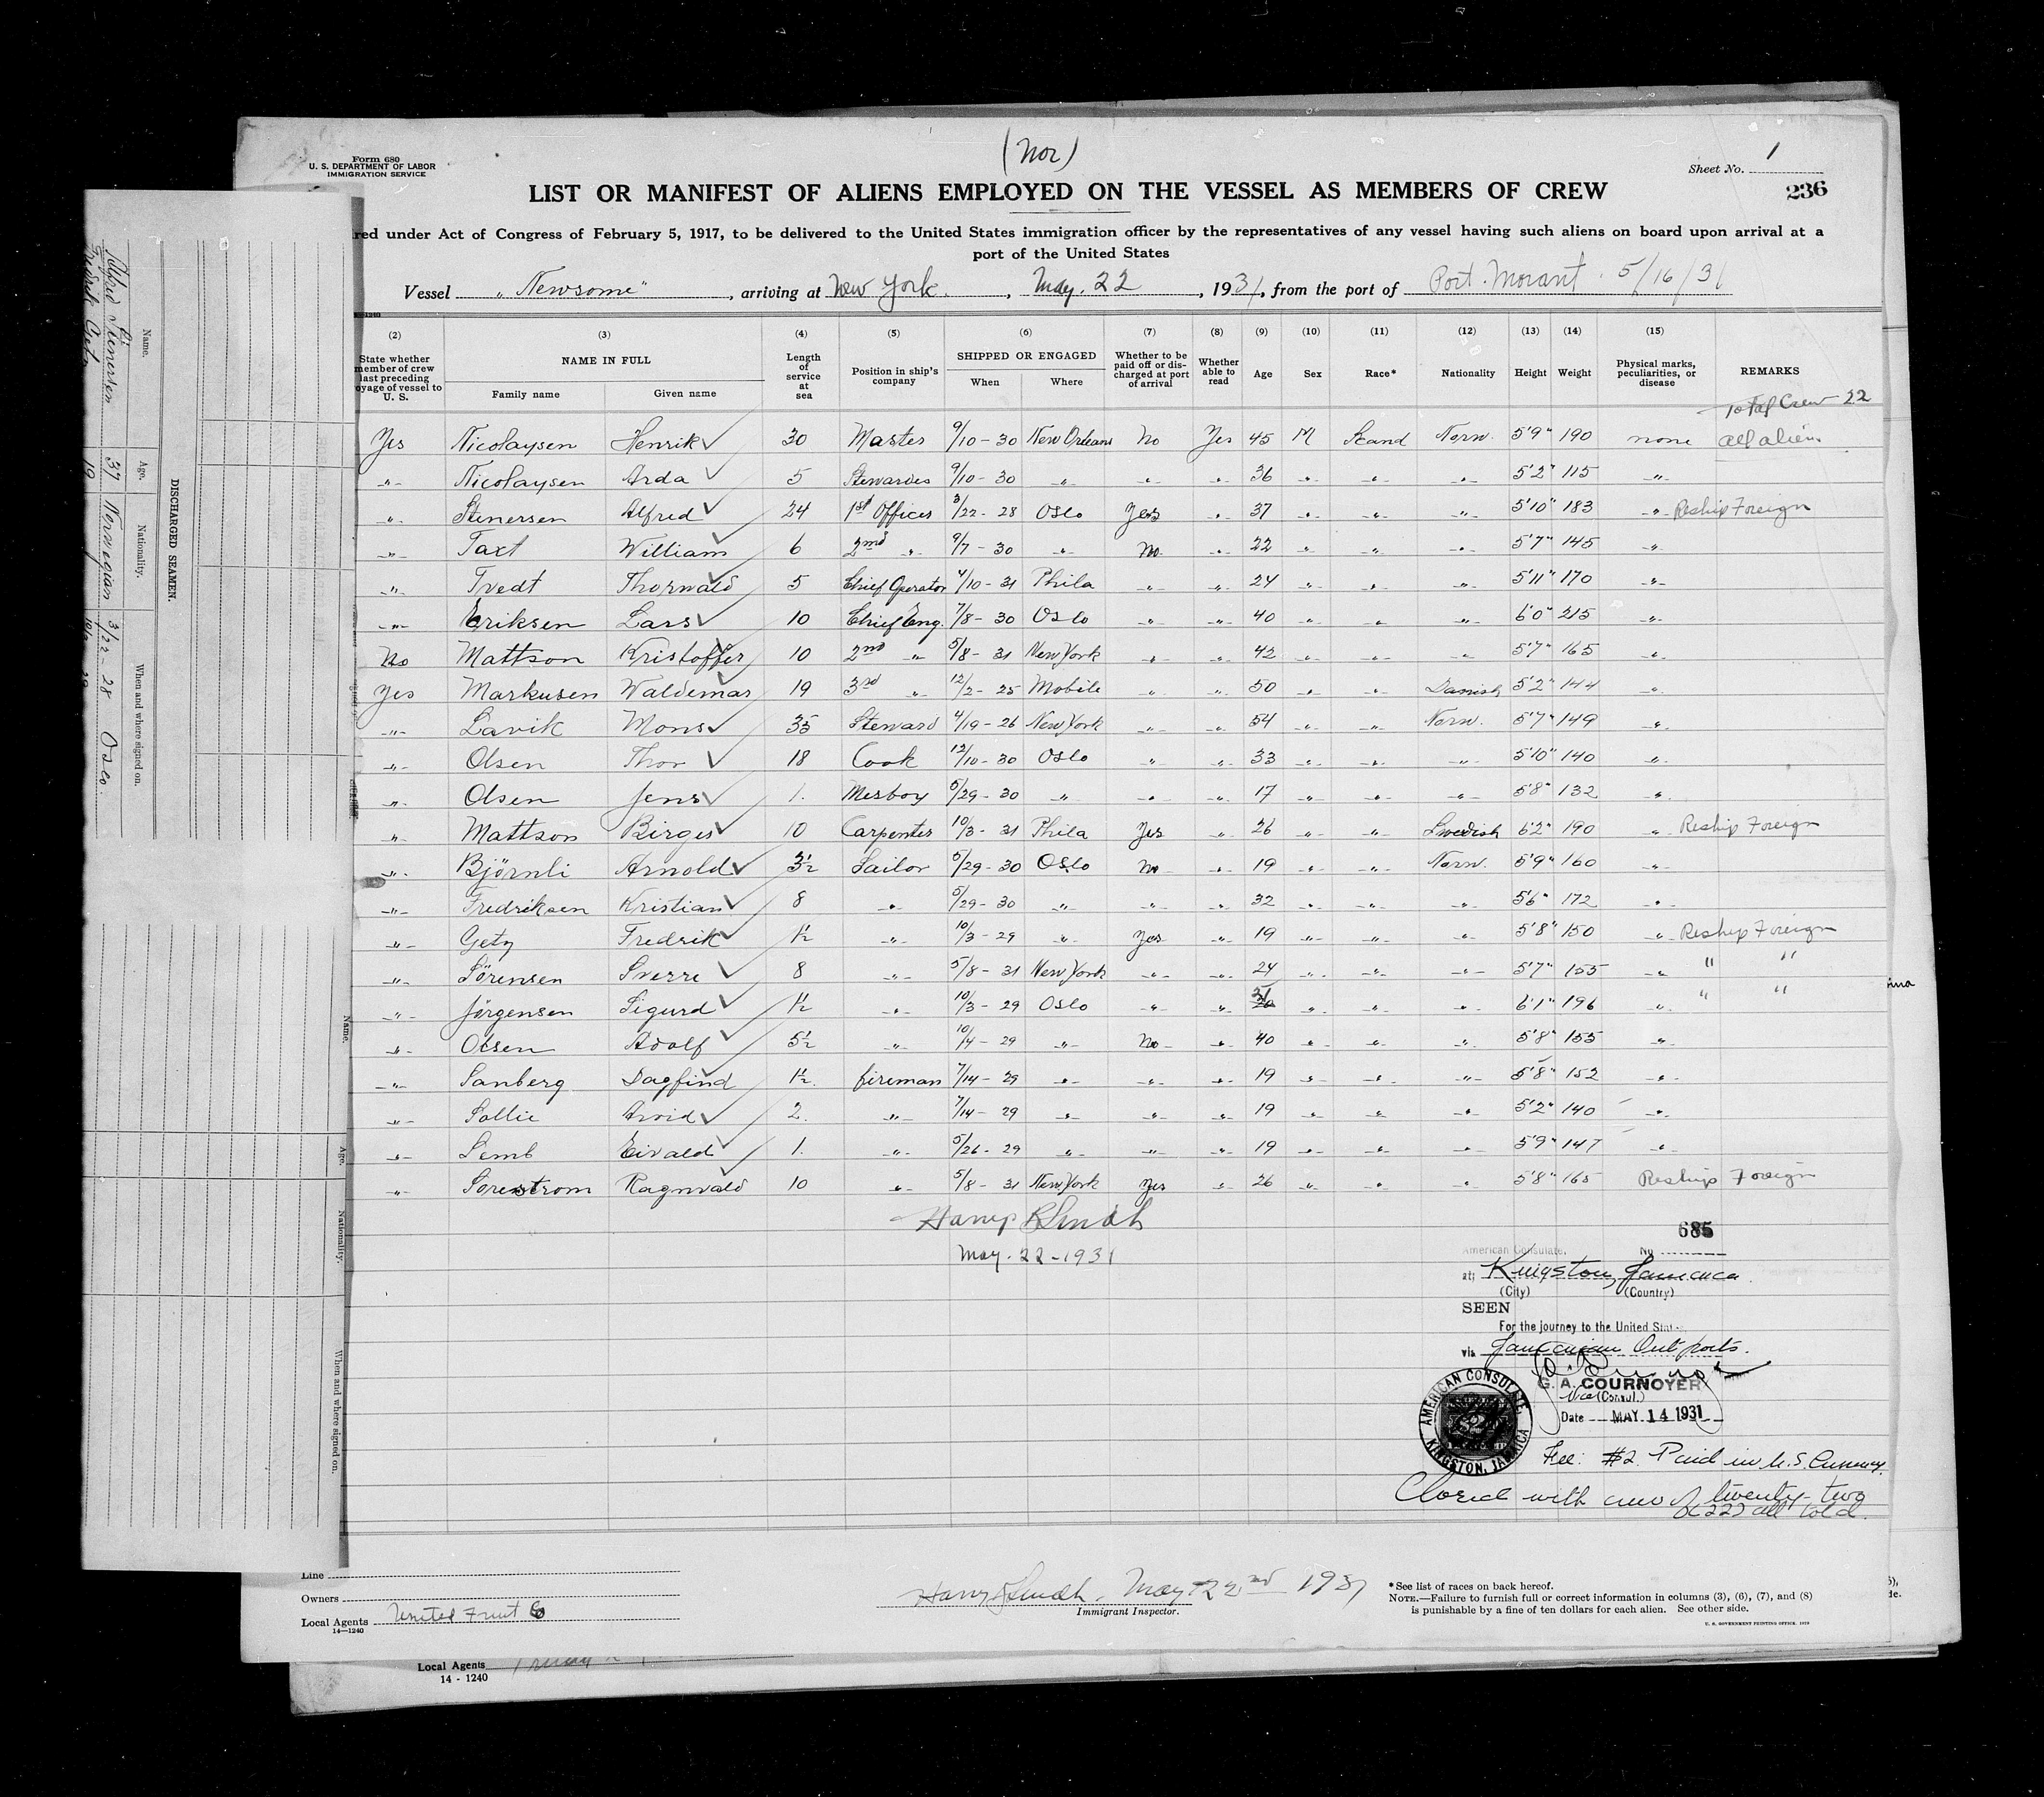 (Nor)
Form 680
U. S. DEPARTMENT OF LABOR
IMMIGRATION SERVICE
Sheet No. 1
LIST OR MANIFEST OF ALIENS EMPLOYED ON THE VESSEL AS MEMBERS OF CREW
236
red under Act of Congress of February 5, 1917, to be delivered to the United States immigration officer by the representatives of any vessel having such aliens on board upon arrival at a
port of the United States
Vessel "Newsome", arriving at New York., May. 22, 1931, from the port of Port. Morant. 5/16/31
(2) (3) (4) (5) (6) (7) (8) (9) (10) (11) (12) (13) (14) (15)
State whether member of crew last preceding oyage of vessel to U. S. NAME IN FULL Family name Given name Length of service at sea Position in ship's company SHIPPED OR ENGAGED When Where Whether to be paid off or discharged at port of arrival Whether able to read Age Sex Race* Nationality Height Weight Physical marks, peculiarities, or disease REMARKS
Total Crew 22
Yes Nicolaysen Henrik ✓ 30 Master 9/10-30 New Orleans No Yes 45 M Scand Norw. 5'9" 190 none all aliens
" Nicolaysen Arda ✓ 5 Stewardes 9/10-30 " " " 36 " " " 5'2" 115 "
" Stenersen Alfred ✓ 24 1st Officer 3/22-28 Oslo Yes " 37 " " " 5'10" 183 " Reship Foreign
" Taxt William ✓ 6 2nd " 9/7-30 " No " 22 " " " 5'7" 145 "
" Tvedt Thorwald ✓ 5 Chief Operator 4/10-31 Phila " " 24 " " " 5'11" 170 "
" Eriksen Lars ✓ 10 Chief Eng. 7/8-30 Oslo " " 40 " " " 6'0" 215 "
No Mattson Kristoffer ✓ 10 2nd " 5/8-31 New York " " 42 " " " 5'7" 165 "
Yes Markusen Waldemar ✓ 19 3rd " 12/2-25 Mobile " " 50 " " Danish 5'2" 144 "
" Lavik Mons ✓ 35 Steward 4/19-26 New York " " 54 " " Norw. 5'7" 149 "
" Olsen Thor ✓ 18 Cook 12/10-30 Oslo " " 33 " " " 5'10" 140 "
" Olsen Jens ✓ 1. Mesboy 5/29-30 " " " 17 " " " 5'8" 132 "
" Mattson Birger ✓ 10 Carpenter 10/3-31 Phila Yes " 26 " " Swedish 6'2" 190 " Reship Foreign
" Bjõrnli Arnold ✓ 3½ Sailor 5/29-30 Oslo No " 19 " " Norw. 5'9" 160 "
" Fredriksen Kristian ✓ 8 " 5/29-30 " " " 32 " " " 5'6" 172 "
" Getz Fredrik ✓ 1½ " 10/3-29 " Yes " 19 " " " 5'8" 150 " Reship Foreign
" Sörensen Sverre ✓ 8 " 5/8-31 New York " " 24 " " " 5'7" 155 " " "
" Jörgensen Sigurd ✓ 1½ " 10/3-29 Oslo " " 31 " " " 6'1" 196 " " "
" Olsen Adolf ✓ 5½ " 10/4-29 " No " 40 " " " 5'8" 155 "
" Sanberg Dagfind ✓ 1½. fireman 7/14-29 " " " 19 " " " 5'8" 152 "
" Sollie Arvid ✓ 2. " 7/14-29 " " " 19 " " " 5'2" 140 "
" Semb Eivald ✓ 1. " 5/26-29 " " " 19 " " " 5'9" 147 "
" Sorenstrom Ragnvald 10 " 5/8-31 New York Yes " 26 " " " 5'8" 165 Reship Foreign
Harry Smith
May. 22-1931
685
American Consulate, No
at; Kingston, Jamaica.
(City) (Country)
SEEN
For the journey to the United States
via Jamaican Outports.
G. A. COURNOYER
Vice (Consul.)
Date MAY 14 1931
AMERICAN CONSULATE,
KINGSTON, JAMAICA
Fee: $2 Paid in U.S. Currency.
Closed with crew of twenty-two
(22) all told.
Line
Owners
Local Agents United Fruit Co
14—1240
Harry Smith. May 22nd 1931
Immigrant Inspector.
*See list of races on back hereof.
NOTE.—Failure to furnish full or correct information in columns (3), (6), (7), and (8)
is punishable by a fine of ten dollars for each alien. See other side.
U. S. GOVERNMENT PRINTING OFFICE. 1929
Local Agents
14 - 1240
DISCHARGED SEAMEN.
Name. Age. Nationality. When and where signed on.
Alfred Stenersen 37 Norwegian 3/22-28 Oslo.
Fredrik Getz 19
Name. Age. Nationality. When and where signed on.